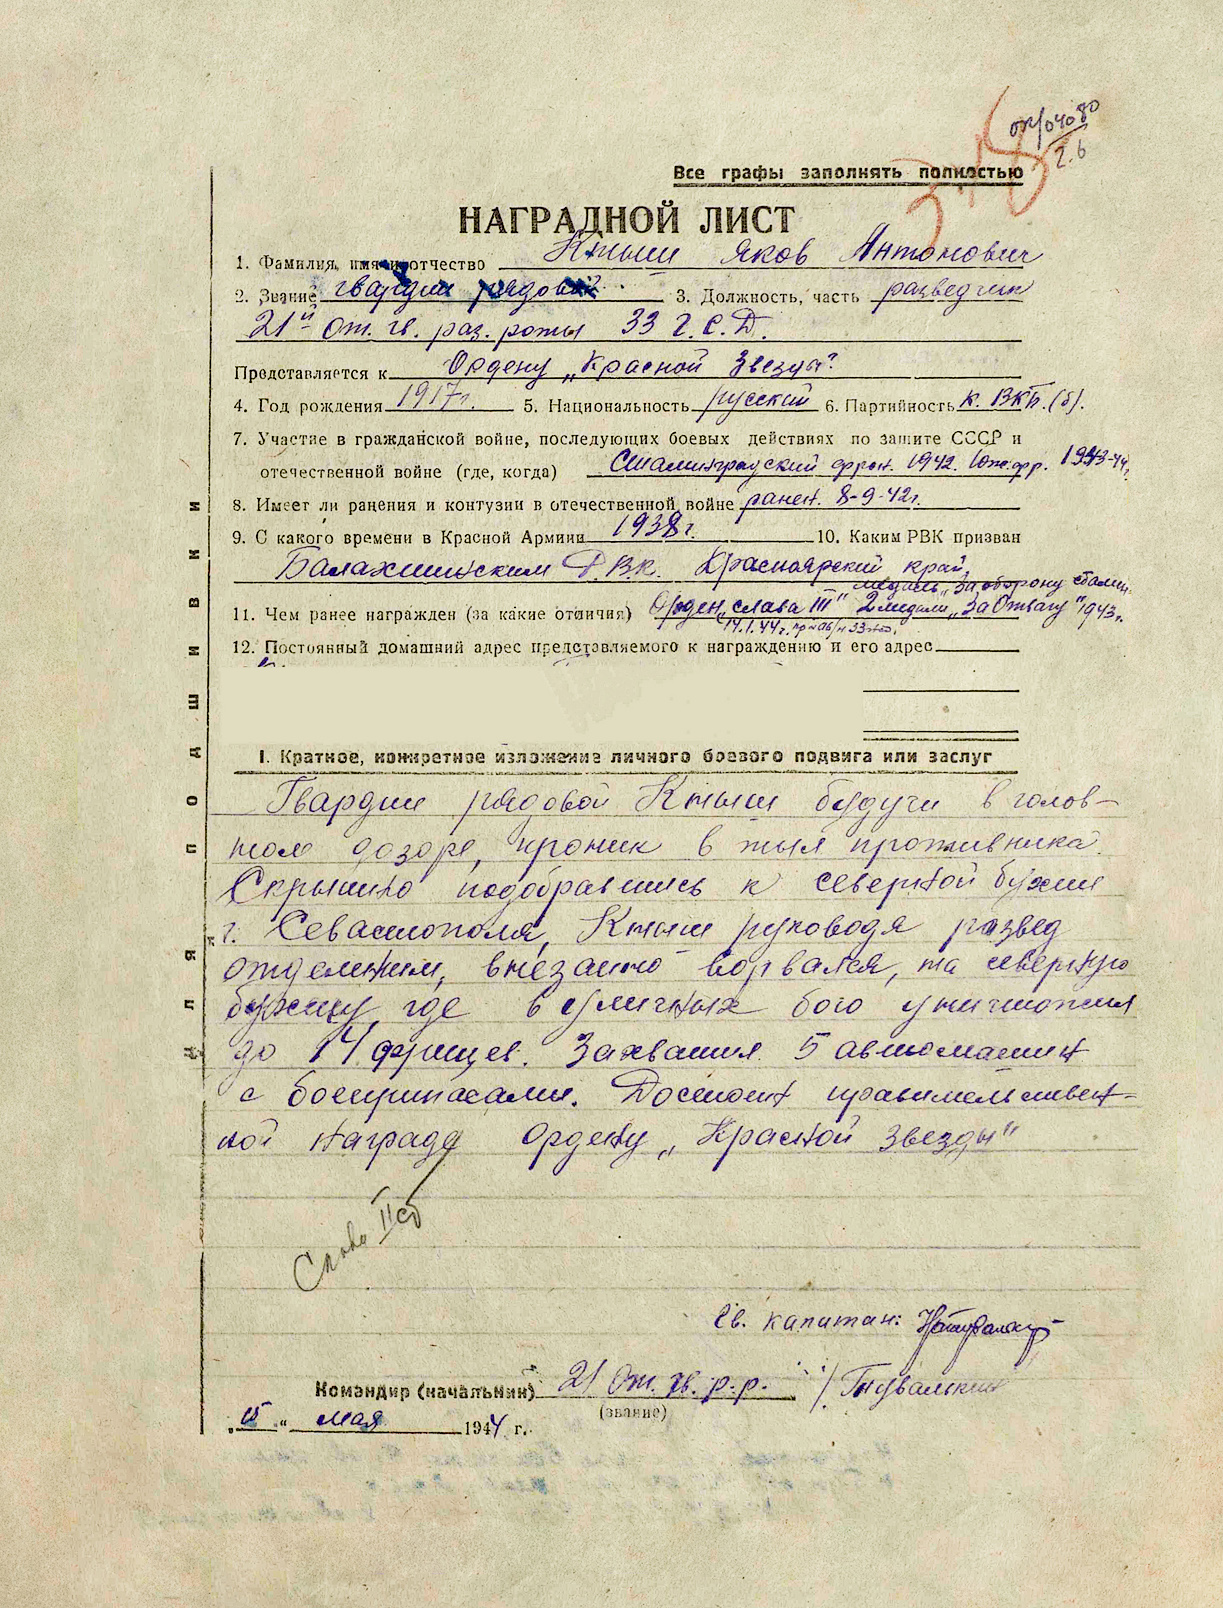 04080
2.6
Все графы заполнять полностью
НАГРАДНОЙ ЛИСТ
1. Фамилия, имя и отчество Ктыш Яков Антонович
2. Звание гвардии рядовой 3. Должность, часть разведчик
21й от. гв. раз. роты 33 г. с. Д.
Представляется к Ордену „Красной Звезды"
4. Год рождения 1917г. 5. Национальность русский 6. Партийность к. ВКП.(б).
7. Участие в гражданской войне, последующих боевых действиях по защите СССР и
отечественной войне (где, когда) Сталинградский фронт. 1942. Юж. фр. 1943-44г.
8. Имеет ли ранения и контузии в отечественной войне ранен. 8-9-42г.
9. С какого времени в Красной Армии 1938г. 10. Каким РВК призван
Балахтинским Р.В.К. Красноярский край.
медаль „За оборону Сталин.
11. Чем ранее награжден (за какие отличия) Орден „Слава III" 2 медали „За Отвагу" 1943г.
14.1.44г.
12. Постоянный домашний адрес представляемого к награждению и его адрес
I. Краткое, конкретное изложение личного боевого подвига или заслуг
Гвардии рядовой Ктыш будучи в голов-
ном дозоре, проник в тыл противника.
Скрытно подобравшись к северной бухте
г. Севастополя, Ктыш руководя развед
отделением, внезапно ворвался, на северную
бухту, где в уличных бою уничтожил
до 14 фрицев. Захватил 5 автомашин
с боеприпасами. Достоин правительствен-
ной награде ордену „Красной Звезды"
Слава II ст
Гв. капитан:
Командир (начальник) 21 От. гв. р.р.
(звание)
мая 1944 г.
для подшивки